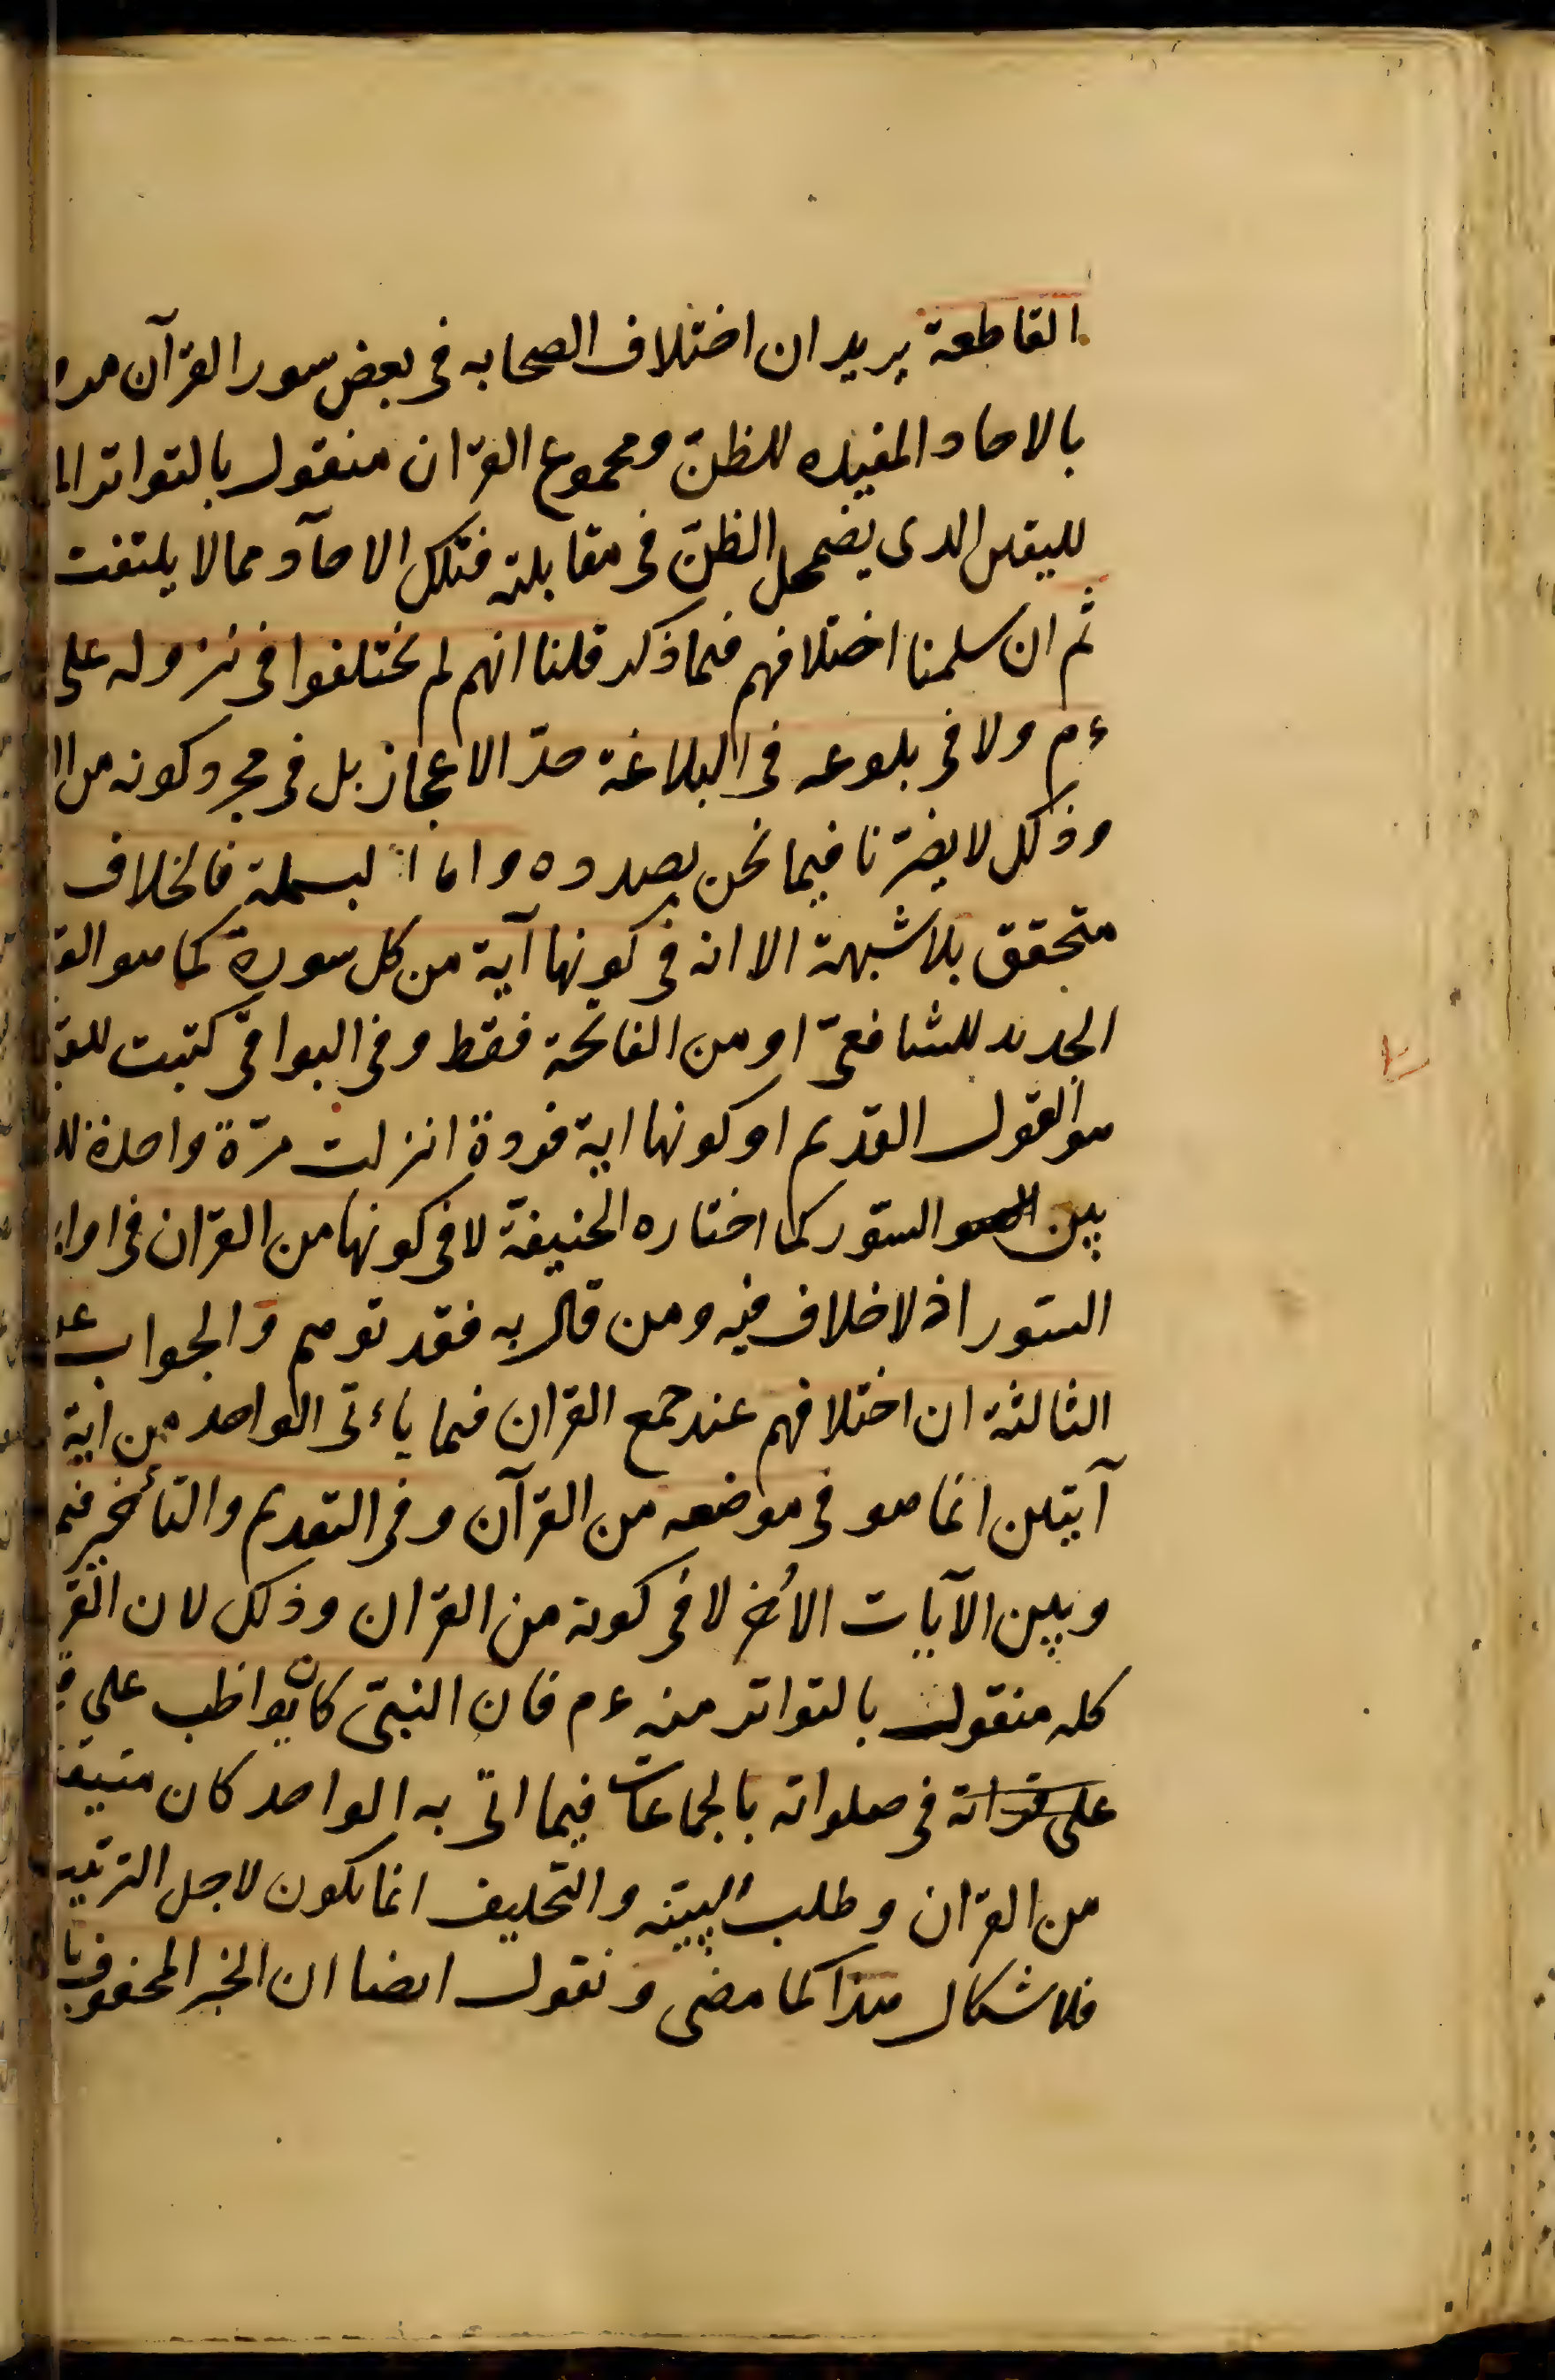 القاطعة يريد ان اختلاف الصحابه فى بعض سور القرآن
بالاحاد المفيده للظنّ ومجموع القرآن منقول بالتواتر
لليقين الذى يضمحل الظنّ فى مقابلته فتلك الاحآد مما لا يلتفت
ثم ان سلمنا اختلافهم فيما ذكر قلنا انهم لم يختلفوا فى نزوله على
ءم ولا فى بلوغه فى البلاغة حدّ الاعجاز بل فى مجرد كونه من
وذلك لا يضرّنا فيما نحن بصدده واما البسملة فالخلاف
متحقق بلا شبهة الا انه فى كونها آية من كل سورة كما هو
الجديد للشافعىّ او من الفاتحة فقط وفى البواقى كتبت
هو القول القديم او كونها اية فردة انزلت مرّة واحدة
بين السور كما اختاره الحنيفة لا فى كونها من القرآن فى
السور اذ لا خلاف فيه ومن قال به فقد توهم والجواب عن
الثالثة ان اختلافهم عند جمع القرآن فيما يأتى الواحد من اية
آيتين انما هو فى موضعه من القرآن وفى التقديم والتأخير
وبين الآيات الأخر لا فى كونه من القرآن وذلك لان
كله منقول بالتواتر منه ءم فان النبىّ كان يواظب على
على قراته فى صلواته بالجماعات فيما اتى به الواحد كان
من القرآن وطلب البينه والتحليف انما يكون لاجل الترتيب
فلا شكال هذا كما مضى ونقول ايضا ان الخبر المحفوف